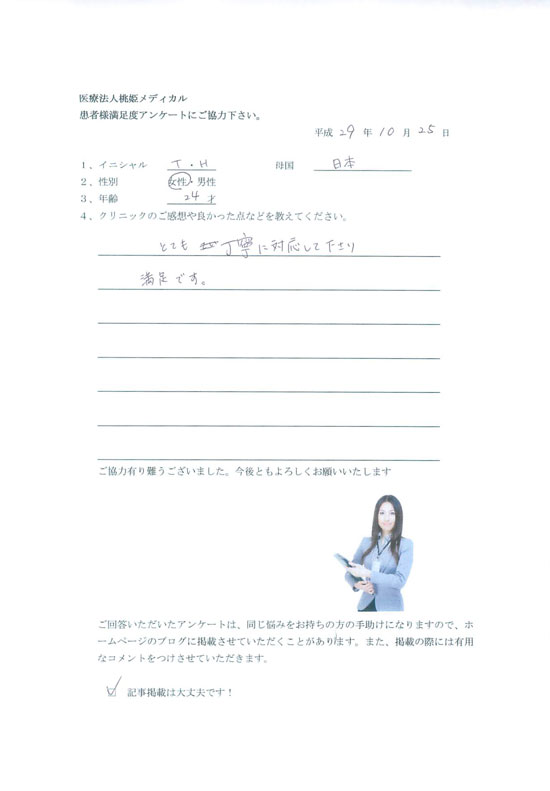 医療法人桃姫メディカル
患者様満足度アンケートにご協力下さい。
平成 29 年 10 月 25 日
1、イニシャル T・H 母国 日本
2、性別 女性・男性
3、年齢 24 才
4、クリニックのご感想や良かった点などを教えてください。
とても 丁寧に対応して下さり
満足です。
ご協力有り難うございました。今後ともよろしくお願いいたします
ご回答いただいたアンケートは、同じ悩みをお持ちの方の手助けになりますので、ホ
ームページのブログに掲載させていただくことがあります。また、掲載の際には有用
なコメントをつけさせていただきます。
☑ 記事掲載は大丈夫です！